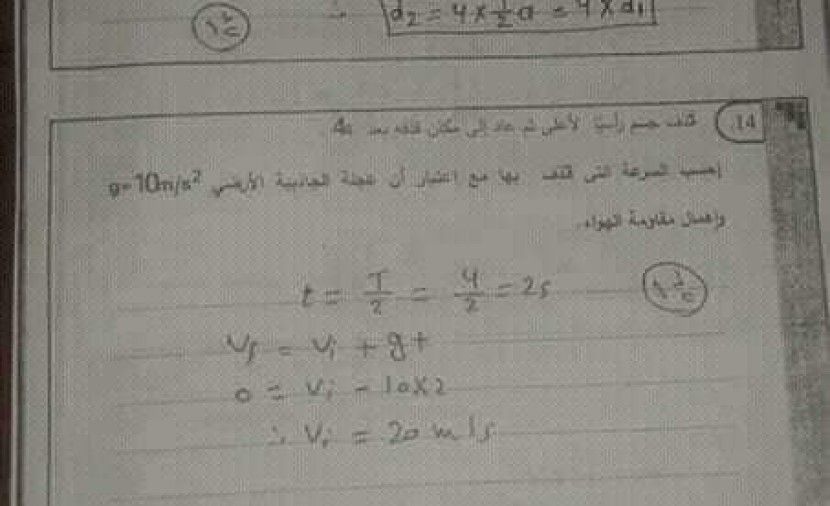 d2 = 4 × 1/2 a = 4 × d1
14 قذف جسم رأسيًا لأعلى ثم عاد إلى مكان قذفه بعد 4s
إحسب السرعة التى قذف بها مع اعتبار أن عجلة الجاذبية الأرضي g=10m/s²
وإهمال مقاومة الهواء.
t = T/2 = 4/2 = 2s
Vf = Vi + gt
0 = Vi - 10×2
∴ Vi = 20 m/s